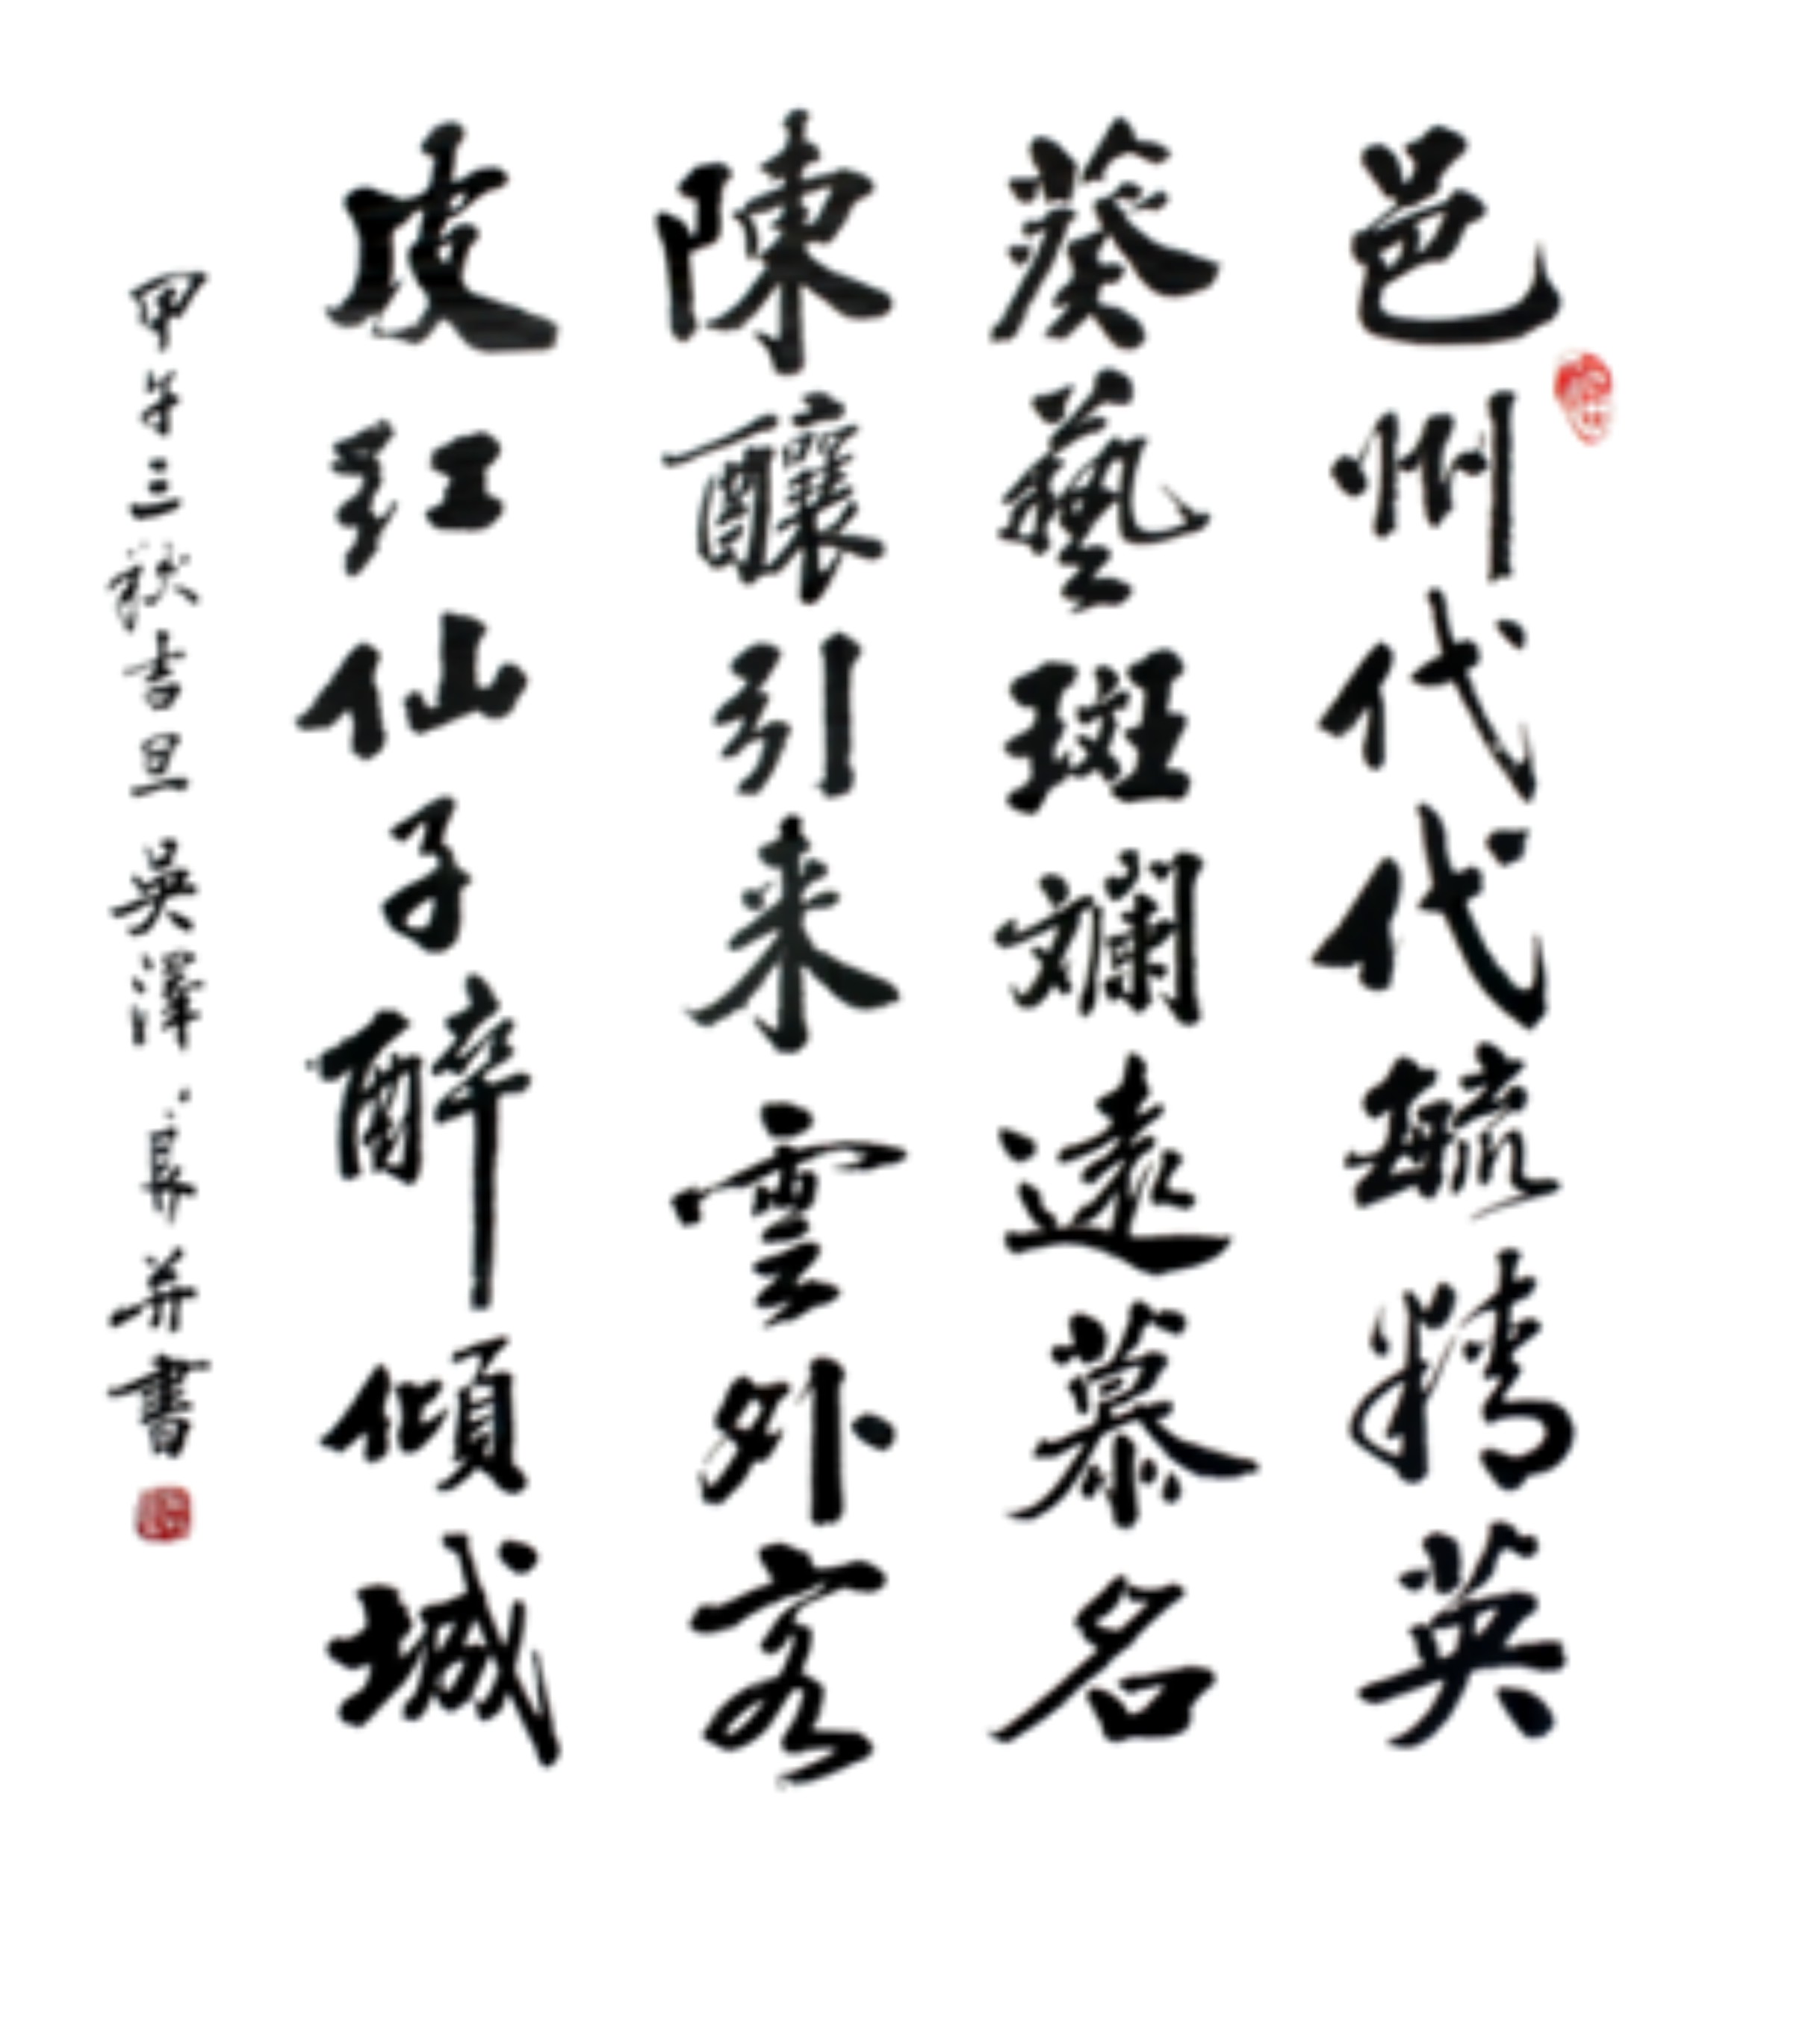 邑州代代毓精英
葵藝斑斕遠慕名
陳釀引来雲外客
皮红仙子醉傾城
甲午三秋吉旦吴澤長并書